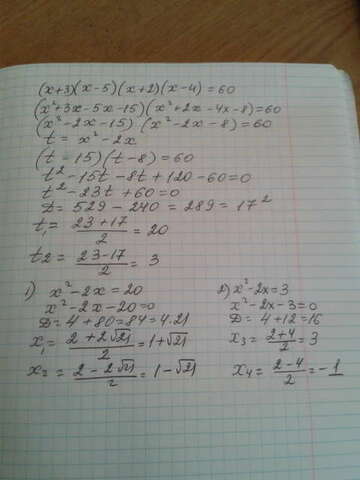 (x+3)(x-5)(x+2)(x-4)=60
(x²+3x-5x-15)(x²+2x-4x-8)=60
(x²-2x-15)(x²-2x-8)=60
t=x²-2x
(t-15)(t-8)=60
t²-15t-8t+120-60=0
t²-23t+60=0
D=529-240=289=17²
t₁=(23+17)/2=20
t₂=(23-17)/2=3
1) x²-2x=20
x²-2x-20=0
D=4+80=84=4·21
x₁=(2+2√21)/2=1+√21
x₂=(2-2√21)/2=1-√21
2) x²-2x=3
x²-2x-3=0
D=4+12=16
x₃=(2+4)/2=3
x₄=(2-4)/2=-1